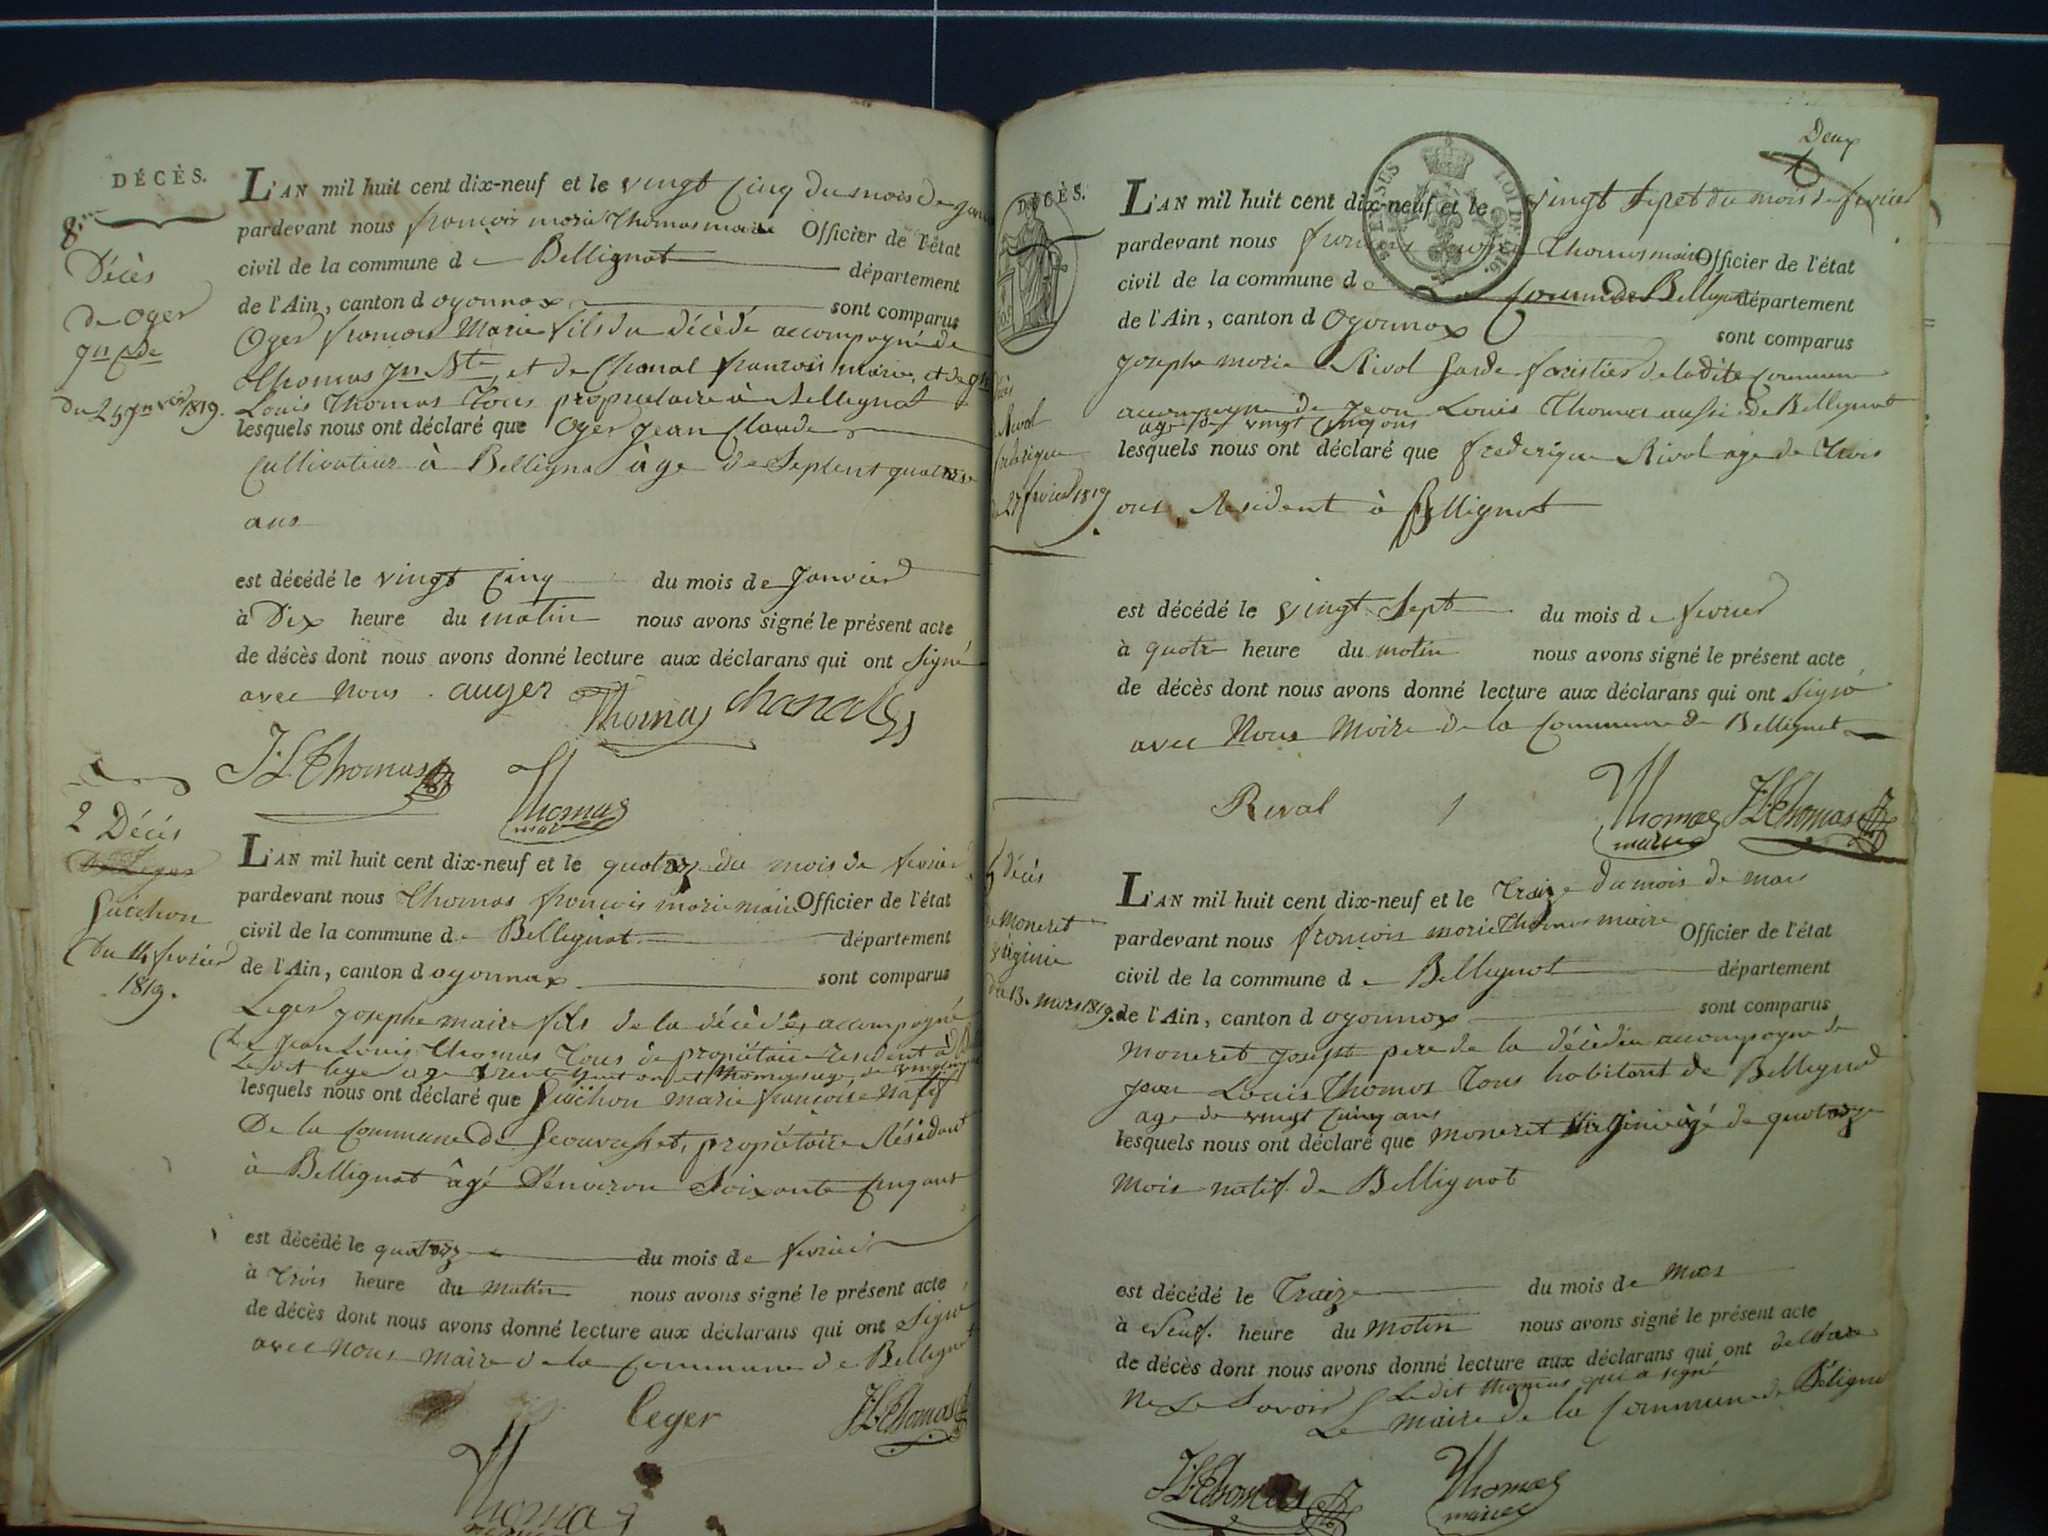 DÉCÈS.
Décès
de Oger
jn Cde
du 25 janvier 1819.
L'AN mil huit cent dix-neuf et le vingt Cinq du mois de janv
pardevant nous françois marie Thomas maire Officier de l'état
civil de la commune de Bellignat département
de l'Ain, canton d oyonnax sont comparus
Oger françois Marie fils du décédé accompagné de
Thomas jn Bte et de Chanal françois marie, et de jn
Louis Thomas Tous propriétaire à Bellignat
lesquels nous ont déclaré que Oger jean Claude
Cultivateur à Bellignat âge de Septent quatorze
ans
est décédé le vingt Cinq du mois de janvier
à Dix heure du matin nous avons signé le présent acte
de décès dont nous avons donné lecture aux déclarans qui ont Signé
avec nous. auger Thomas chanal
J. L. Thomas Thomas
maire
2 Décés
Guichon
Du 14 fevrier
1819.
L'AN mil huit cent dix-neuf et le quatorze du mois de fevrier
pardevant nous Thomas françois marie maire Officier de l'état
civil de la commune de Bellignat département
de l'Ain, canton d oyonnax sont comparus
Leger josephe maire fils de la décèdée, accompagné
de Jean Louis Thomas Tous de propiétaire resident à
Le dit leger age trente huit ans et thomas age, de vingt
lesquels nous ont déclaré que Guichon marie françoise Natif
De la Commune de Geovresset, propiétaire Résidant
à Bellignat âgé D'énviron Soixante Cinq ans
est décédé le quatorze du mois de fevrier
à Trois heure du matin nous avons signé le présent acte
de décès dont nous avons donné lecture aux déclarans qui ont Signé
avec nous maire de la Commune de Bellignat
leger J. L. Thomas
Thomas
Deux
DÉCÈS.
Rival
frederique
27 fevrier 1819
L'AN mil huit cent dix-neuf et le vingt Sepet du mois de fevrier
pardevant nous françois marie Thomas maire Officier de l'état
civil de la commune de Commde Bellignat département
de l'Ain, canton d Oyonnax sont comparus
josephe marie Rival garde foristier de la dite Commune
accompagne de jean Louis Thomas aussi de Bellignat
age de vingt Cinq ans
lesquels nous ont déclaré que frederique Rival age de Trois
ans, Resident à Bellignat
est décédé le vingt Sept du mois de fevrier
à quatre heure du matin nous avons signé le présent acte
de décès dont nous avons donné lecture aux déclarans qui ont Signé
avec Nous Maire de la Commune de Bellignat
Rival Thomas J. L. Thomas
maire
décès
de Moneret
Virginie
du 13. mars 1819.
L'AN mil huit cent dix-neuf et le Traize du mois de mars
pardevant nous françois marie Thomas maire Officier de l'état
civil de la commune de Bellignat département
de l'Ain, canton d oyonnax sont comparus
moneret joseph pere de la décèdée accompagne de
jean Louis Thomas Tous habitant de Bellignat
age de vingt Cinq ans
lesquels nous ont déclaré que moneret Virginie âgé de quatorze
Mois natif de Bellignat
est décédé le Traize du mois de Mars
à Neuf. heure du Matin nous avons signé le présent acte
de décès dont nous avons donné lecture aux déclarans qui ont déclaré
Ne Le Savoir Ledit thomas qui a signé
Le maire de la Commune de Béligna
J. L. Thomas Thomas
maire